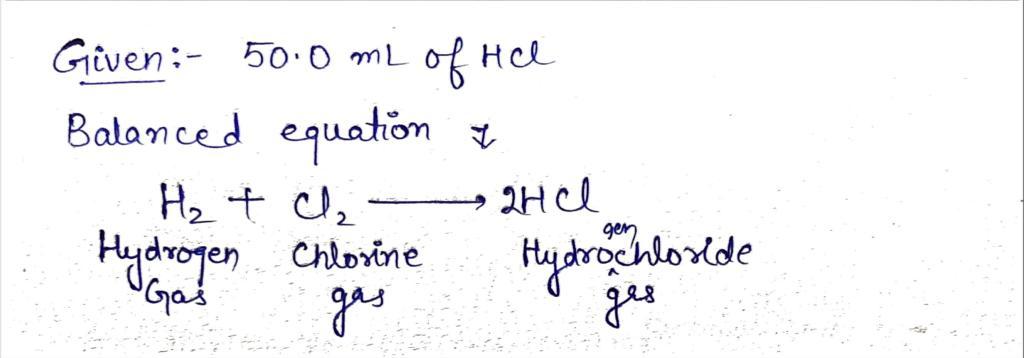 Given:- 50.0 mL of HCl
Balanced equation
H₂ + Cl₂ ⟶ 2HCl
Hydrogen Chlorine Hydrogenchloride
Gas gas gas